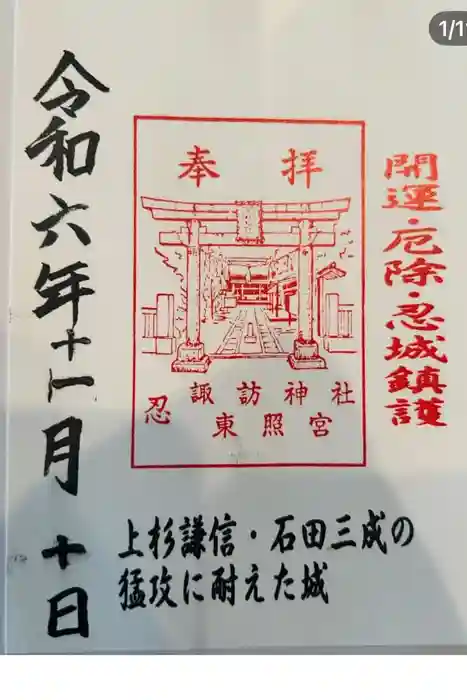 1/1
開運・厄除・忍城鎮護
奉拝
諏訪神社
忍東照宮
上杉謙信・石田三成の
猛攻に耐えた城
令和六年十一月十日